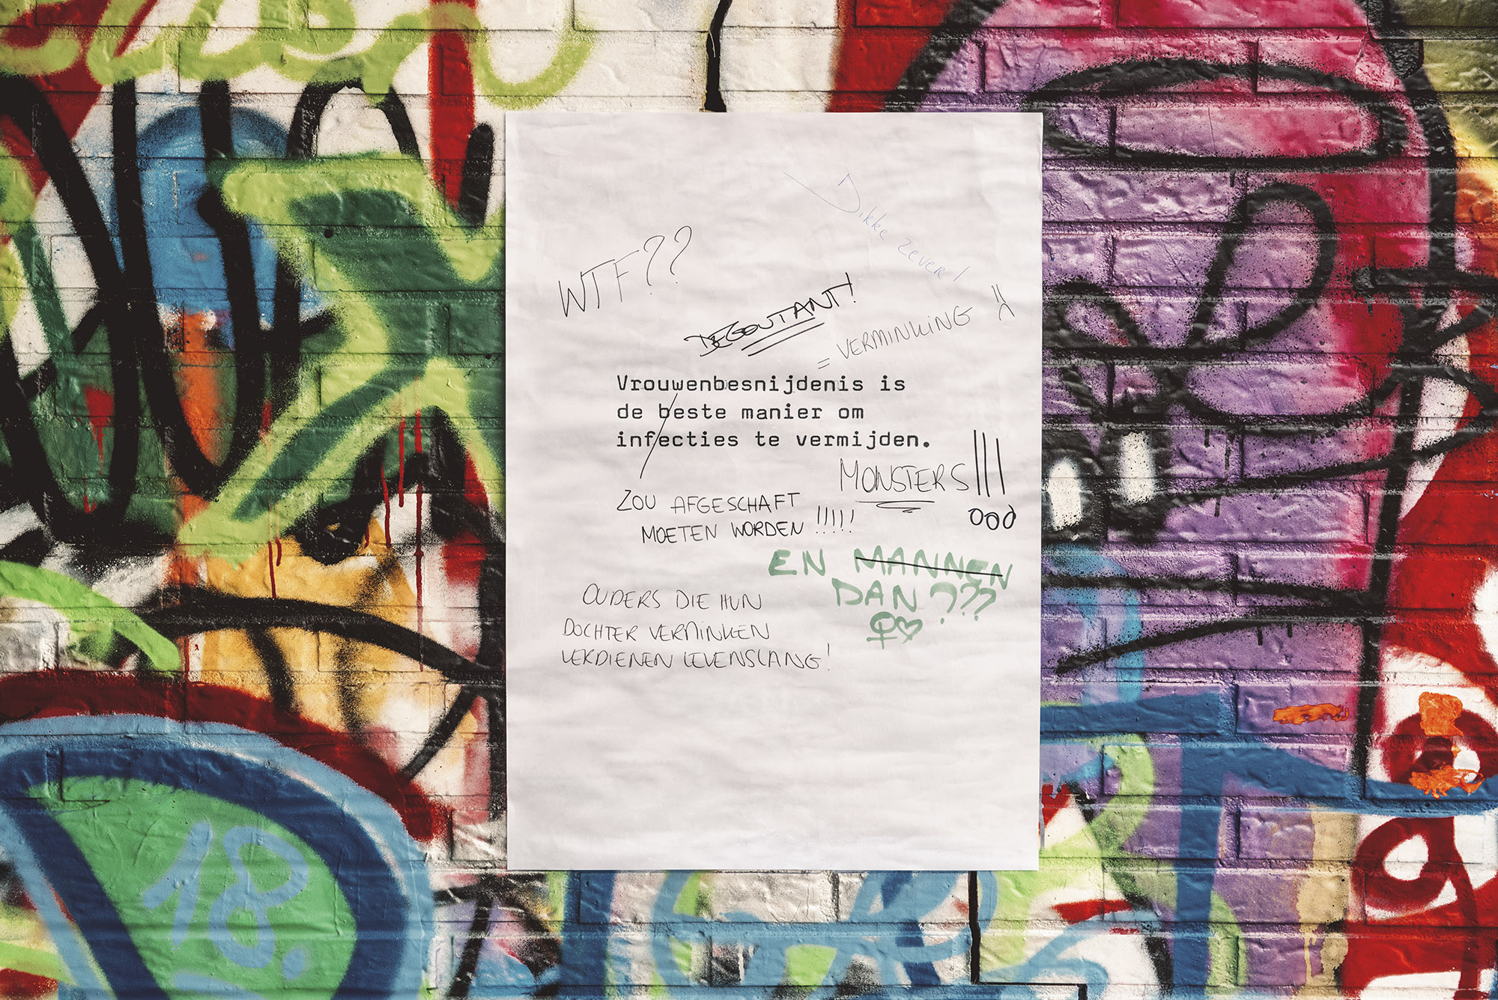 Dikke zever!
WTF??
DEGOUTANT!
= VERMINKING
Vrouwenbesnijdenis is
de beste manier om
infecties te vermijden.
MONSTERS!!!
ZOU AFGESCHAFT
MOETEN WORDEN !!!!!
EN MANNEN
DAN???
OUDERS DIE HUN
DOCHTER VERMINKEN
VERDIENEN LEVENSLANG!
18.